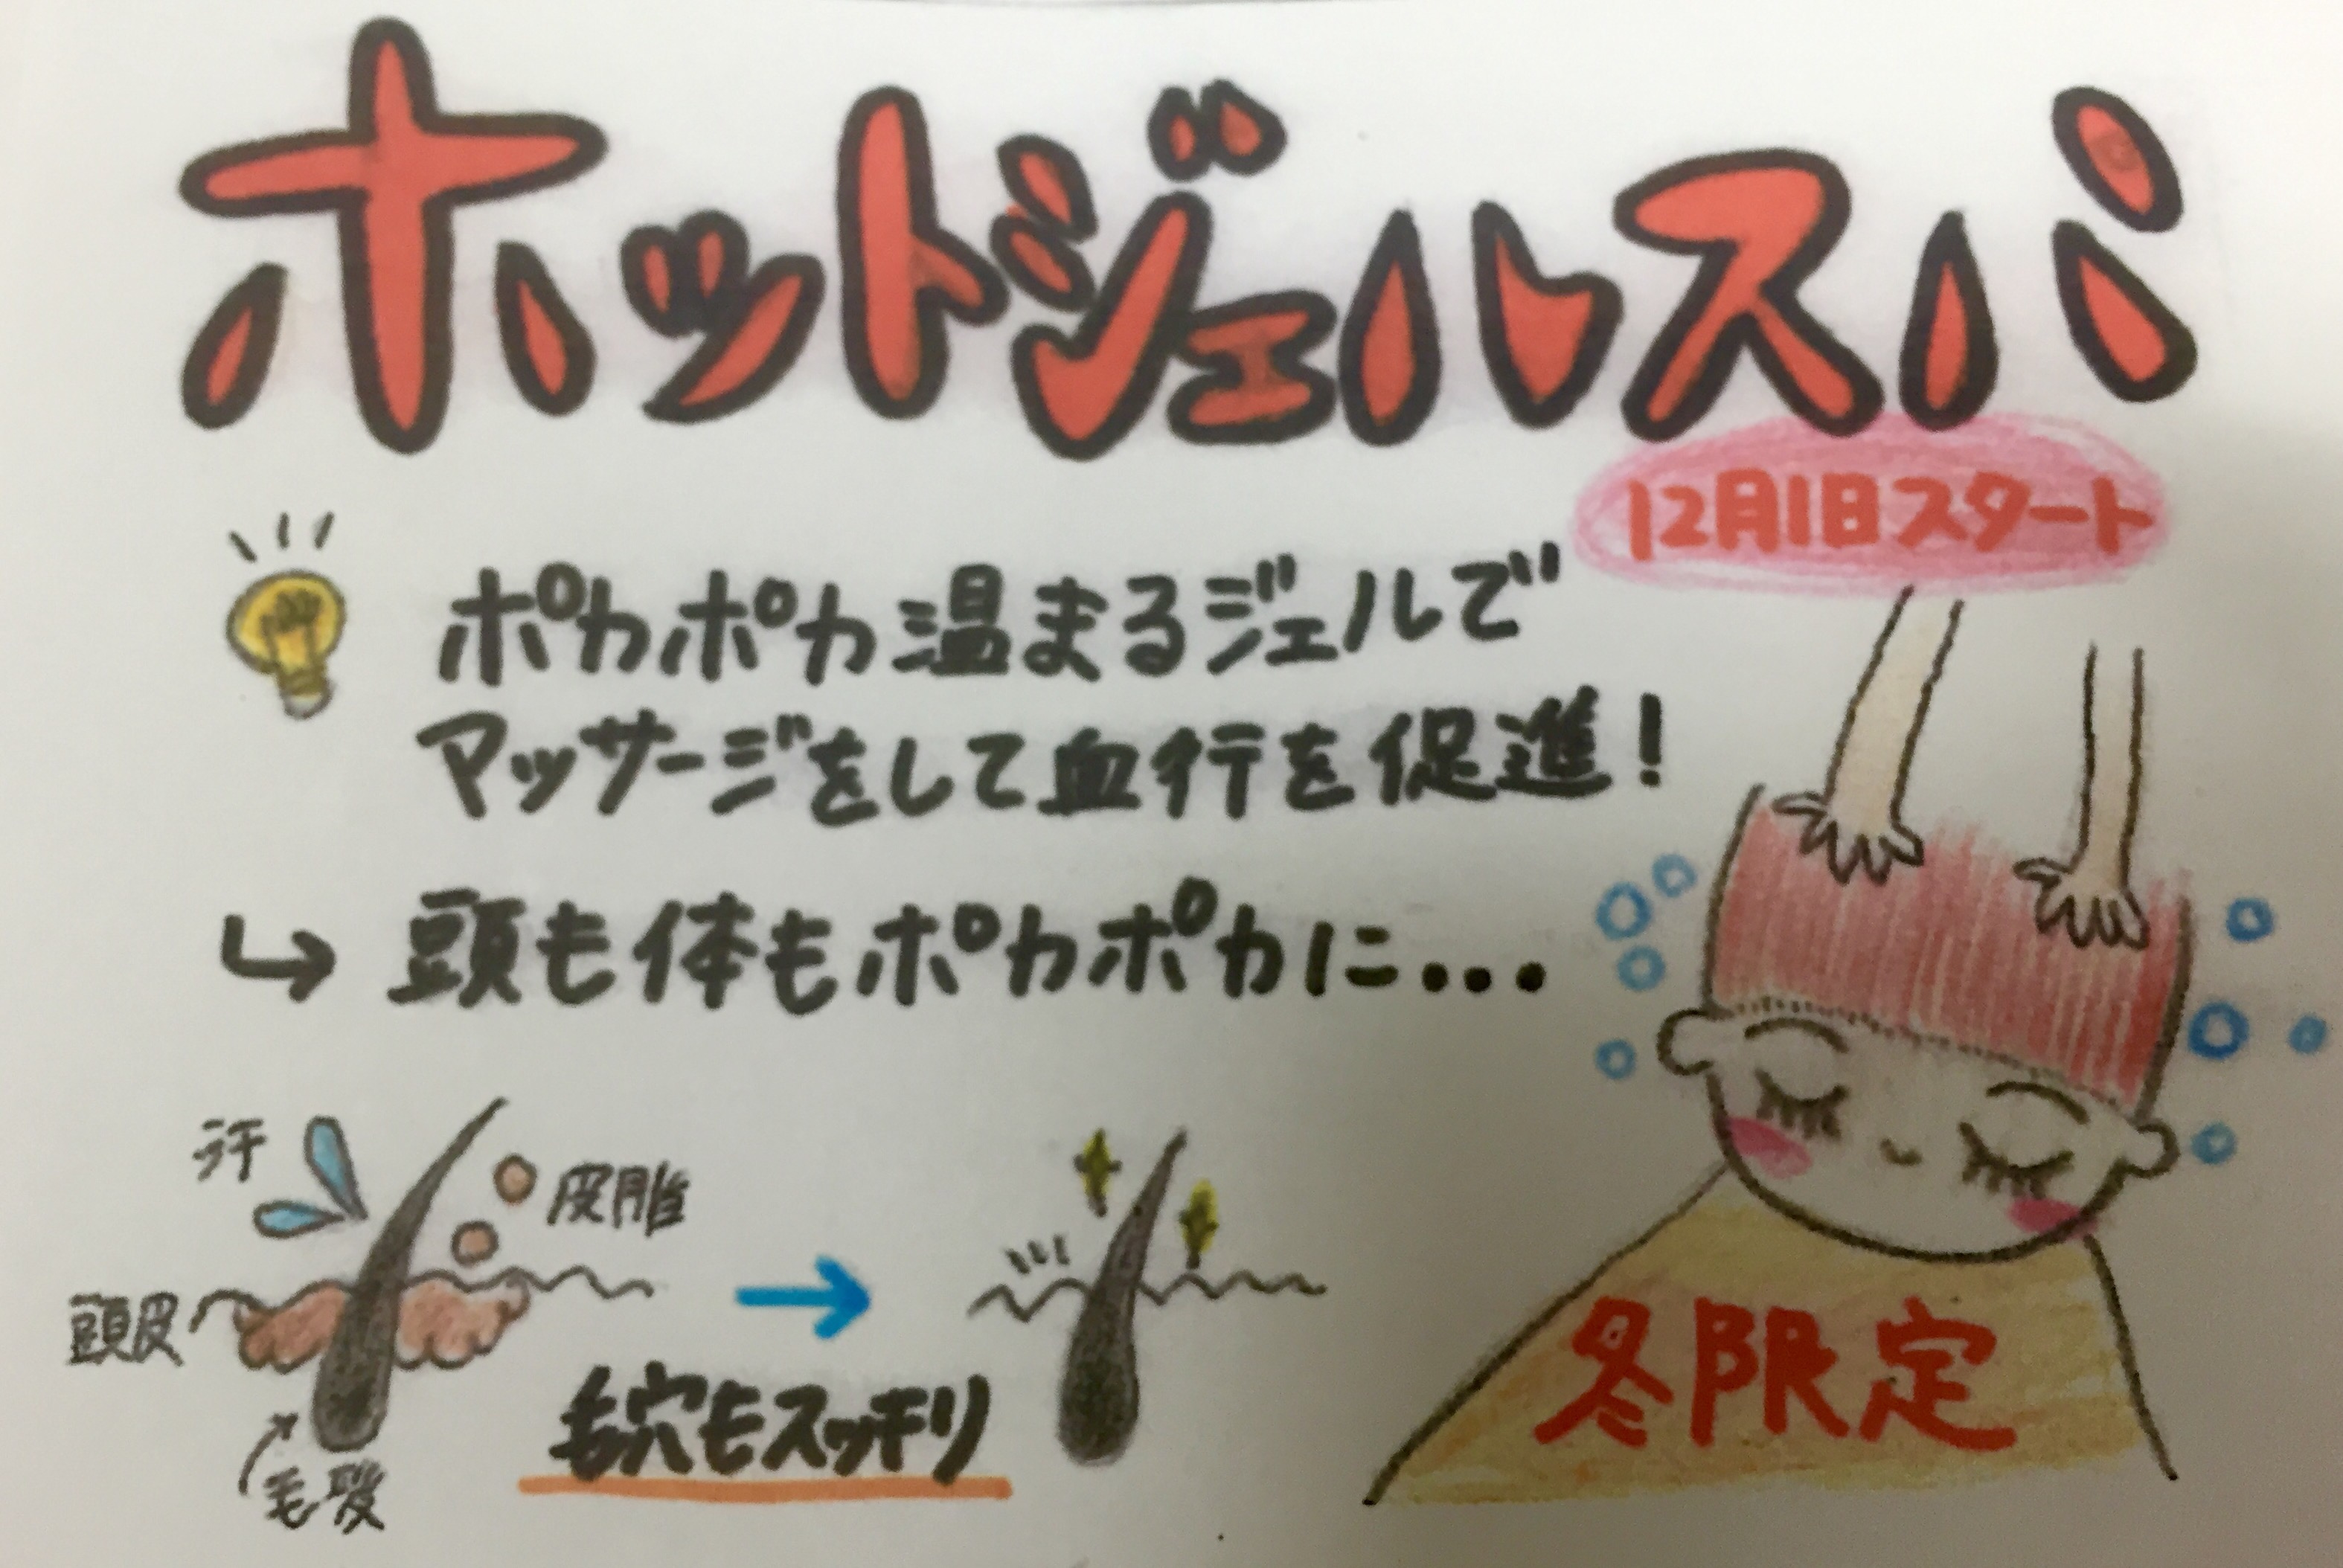 ホットジェルスパ
12月1日スタート
ポカポカ温まるジェルで
マッサージをして血行を促進!
頭も体もポカポカに...
汗
皮脂
頭皮
毛髪
毛穴もスッキリ
冬限定